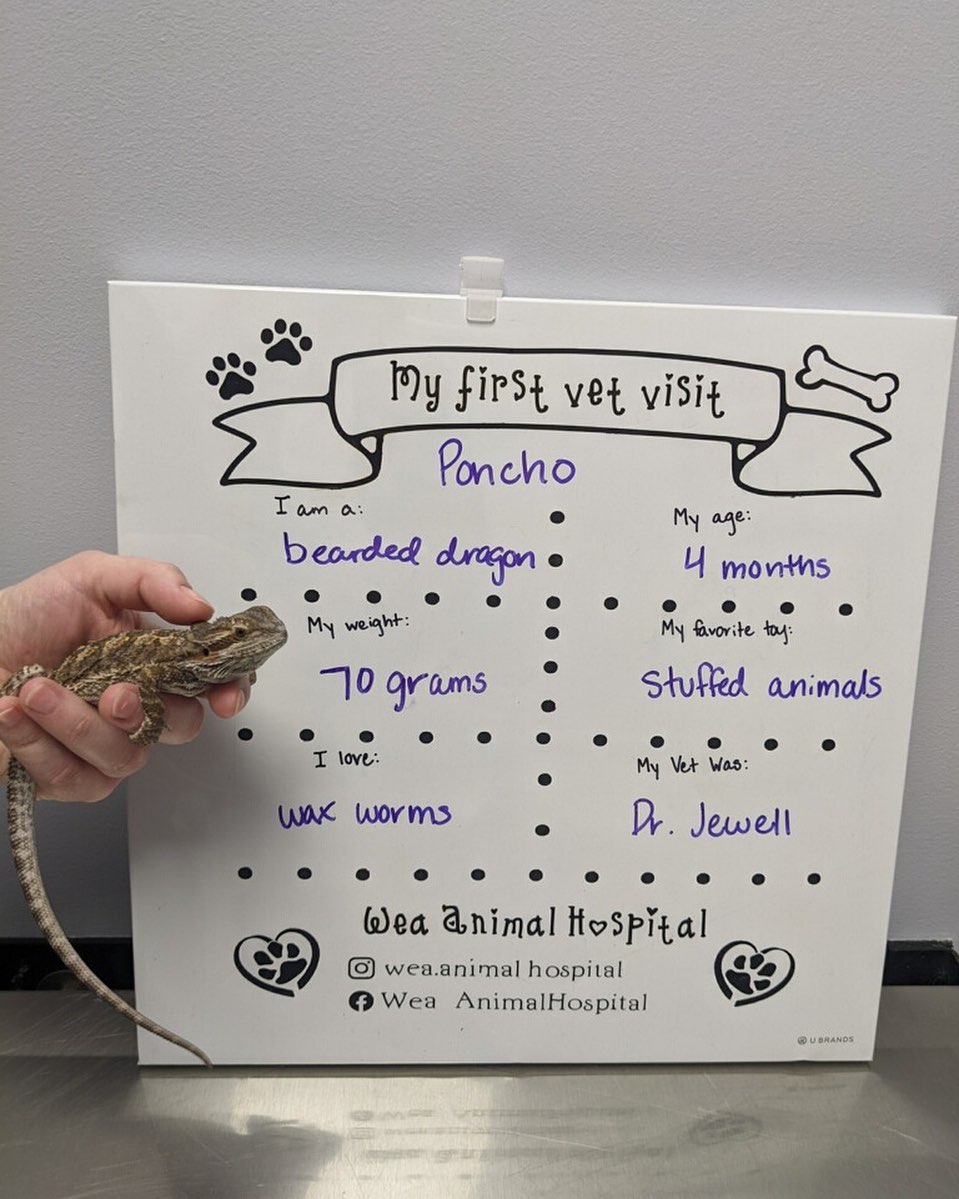 My first vet visit
Poncho
I am a:
bearded dragon
My age:
4 months
My weight:
70 grams
My favorite toy:
stuffed animals
I love:
wax worms
My Vet Was:
Dr. Jewell
Wea Animal Hospital
wea.animal hospital
Wea AnimalHospital
U BRANDS